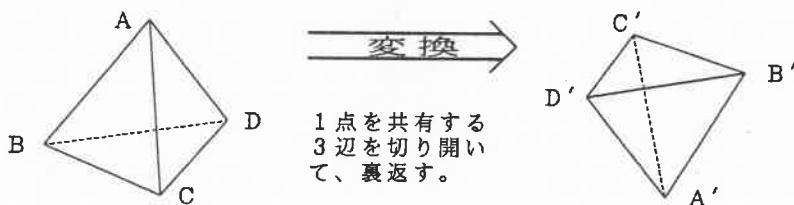 A
B
C
D
変換
1点を共有する
3辺を切り開い
て、裏返す。
C′
D′
B′
A′